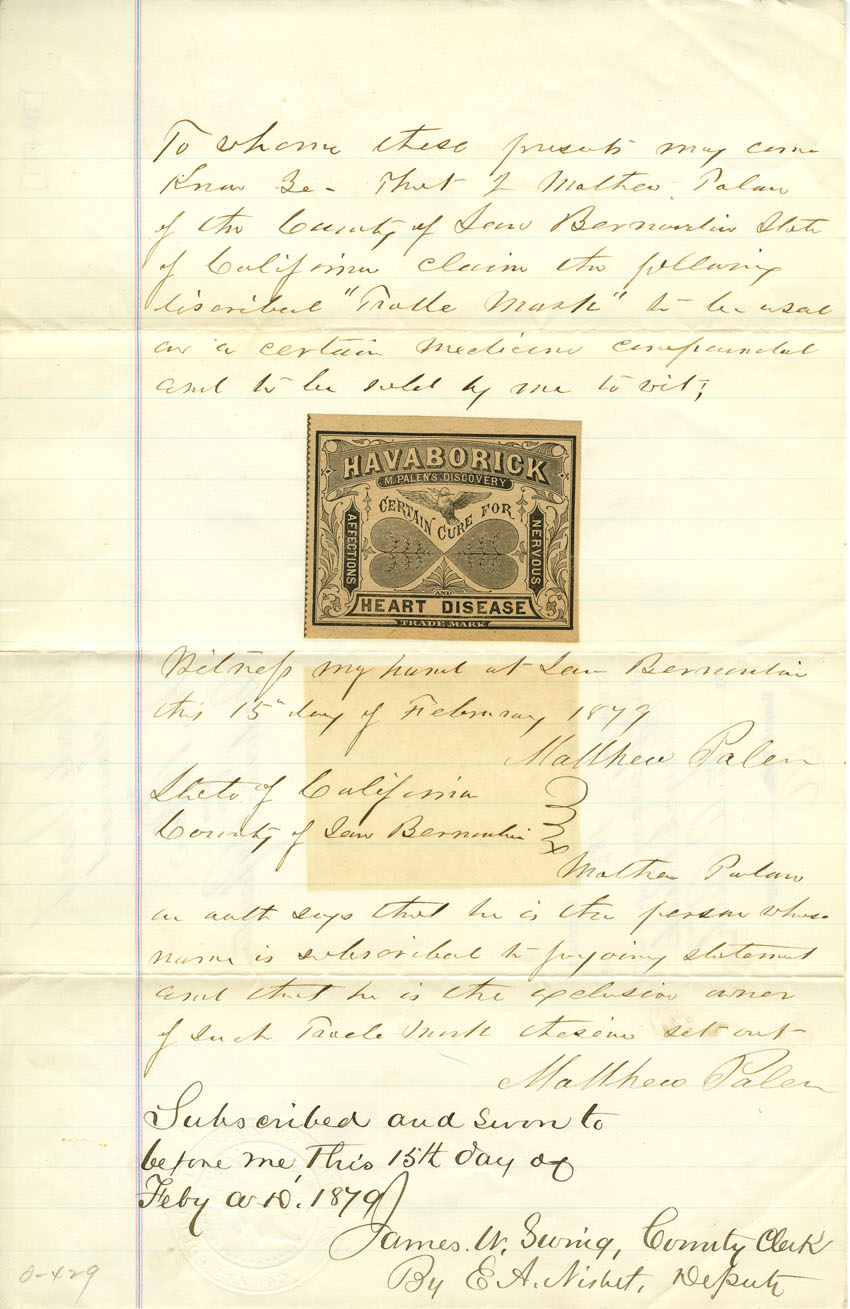 To whome these presents may come
Know Ye - That I Mathew Palen
of the County of San Bernardin State
of California claim the following
discribed "Trade Mark" to be used
on a certain medicine compounded
and to be sold by me to wit;
HAVABORICK
M. PALEN'S DISCOVERY
CERTAIN CURE FOR
AFFECTIONS
NERVOUS
AND
HEART DISEASE
TRADE MARK
Witness my hand at San Bernardin
this 15" day of February 1879
Matthew Palen
State of California
County of San Bernardin
Mathew Palen
on oath says that he is the person whose
name is subscribed to forgoing statement
and that he is the exclusive owner
of such Trade Mark therein set out
Matthew Palen
Subscribed and Sworn to
before me, This 15th day of
Feby A.D. 1879
James. W. Swing, County Clerk
By E. A. Nisbet, Deputy
0-429